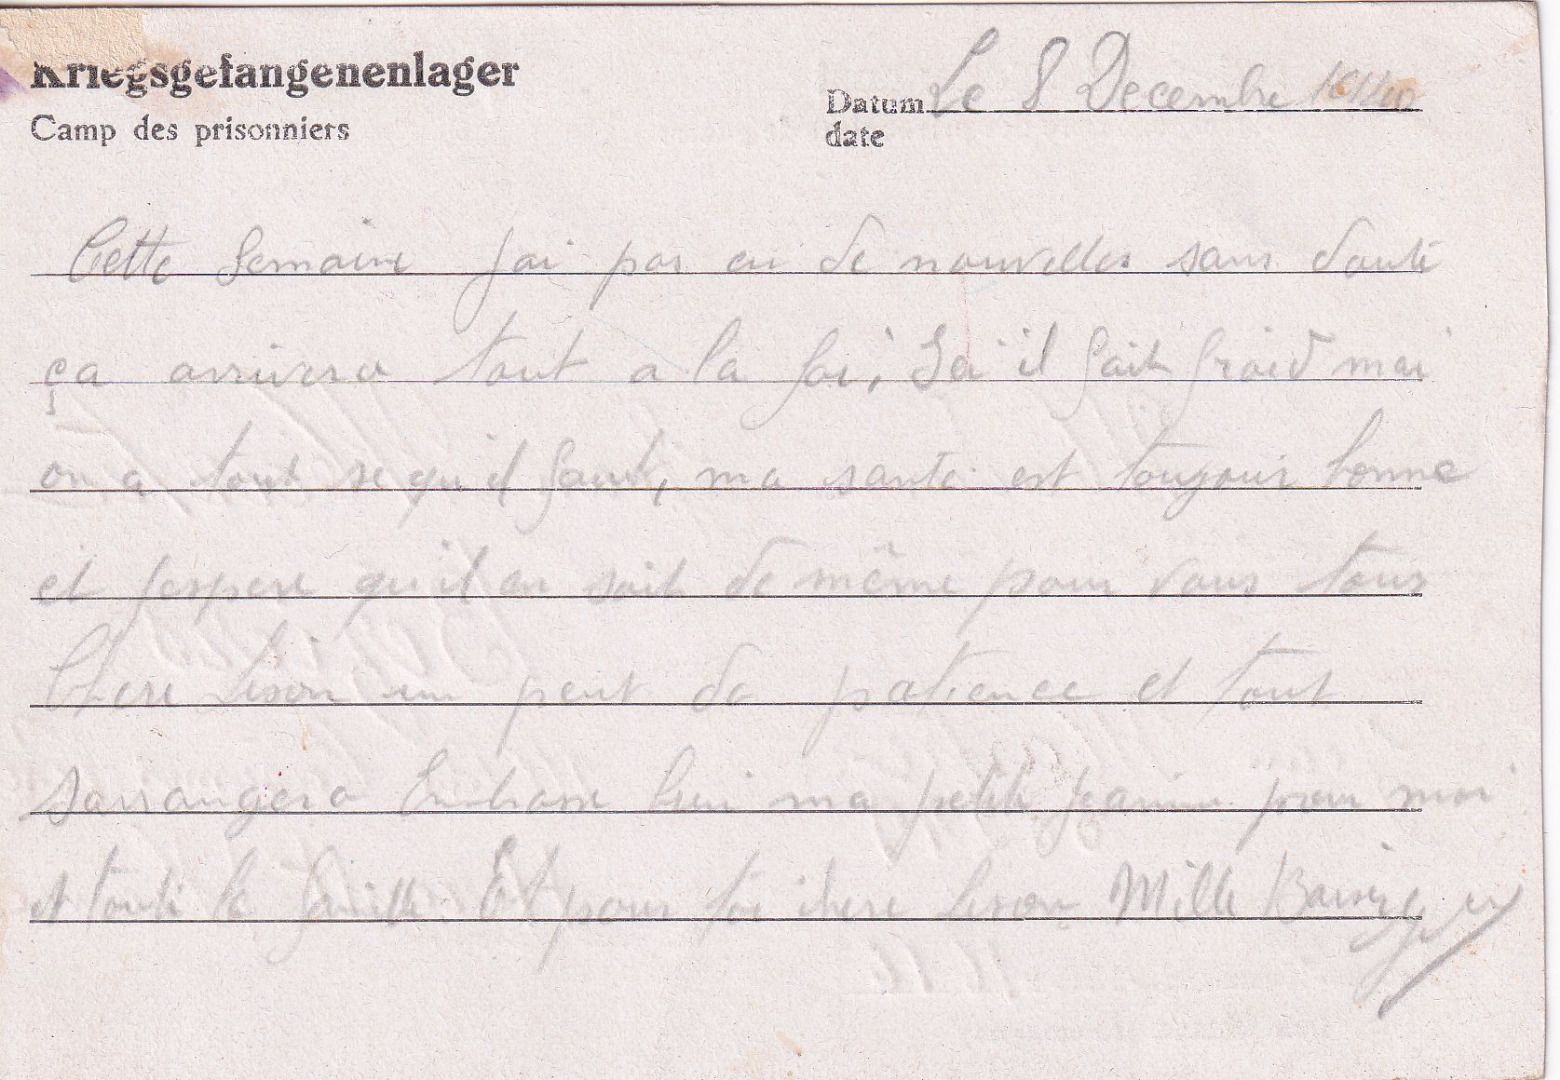 Kriegsgefangenenlager
Camp des prisonniers
Datum Le 8 Decembre 1940
date
Cette Semaine jai pas eu de nouvelles sans doute
ça arrivera tout a la foi, Ici il fait froid mai
on a tout se qu'il faut, ma santé est toujour bonne
et jespere qu'il en soit de même pour vous tous
Chere Lison un peut de patience et tout
sarrangera Embrasse bien ma petite Jeanine pour moi
et toute la famille Et pour toi chere Lison Mille Baisers